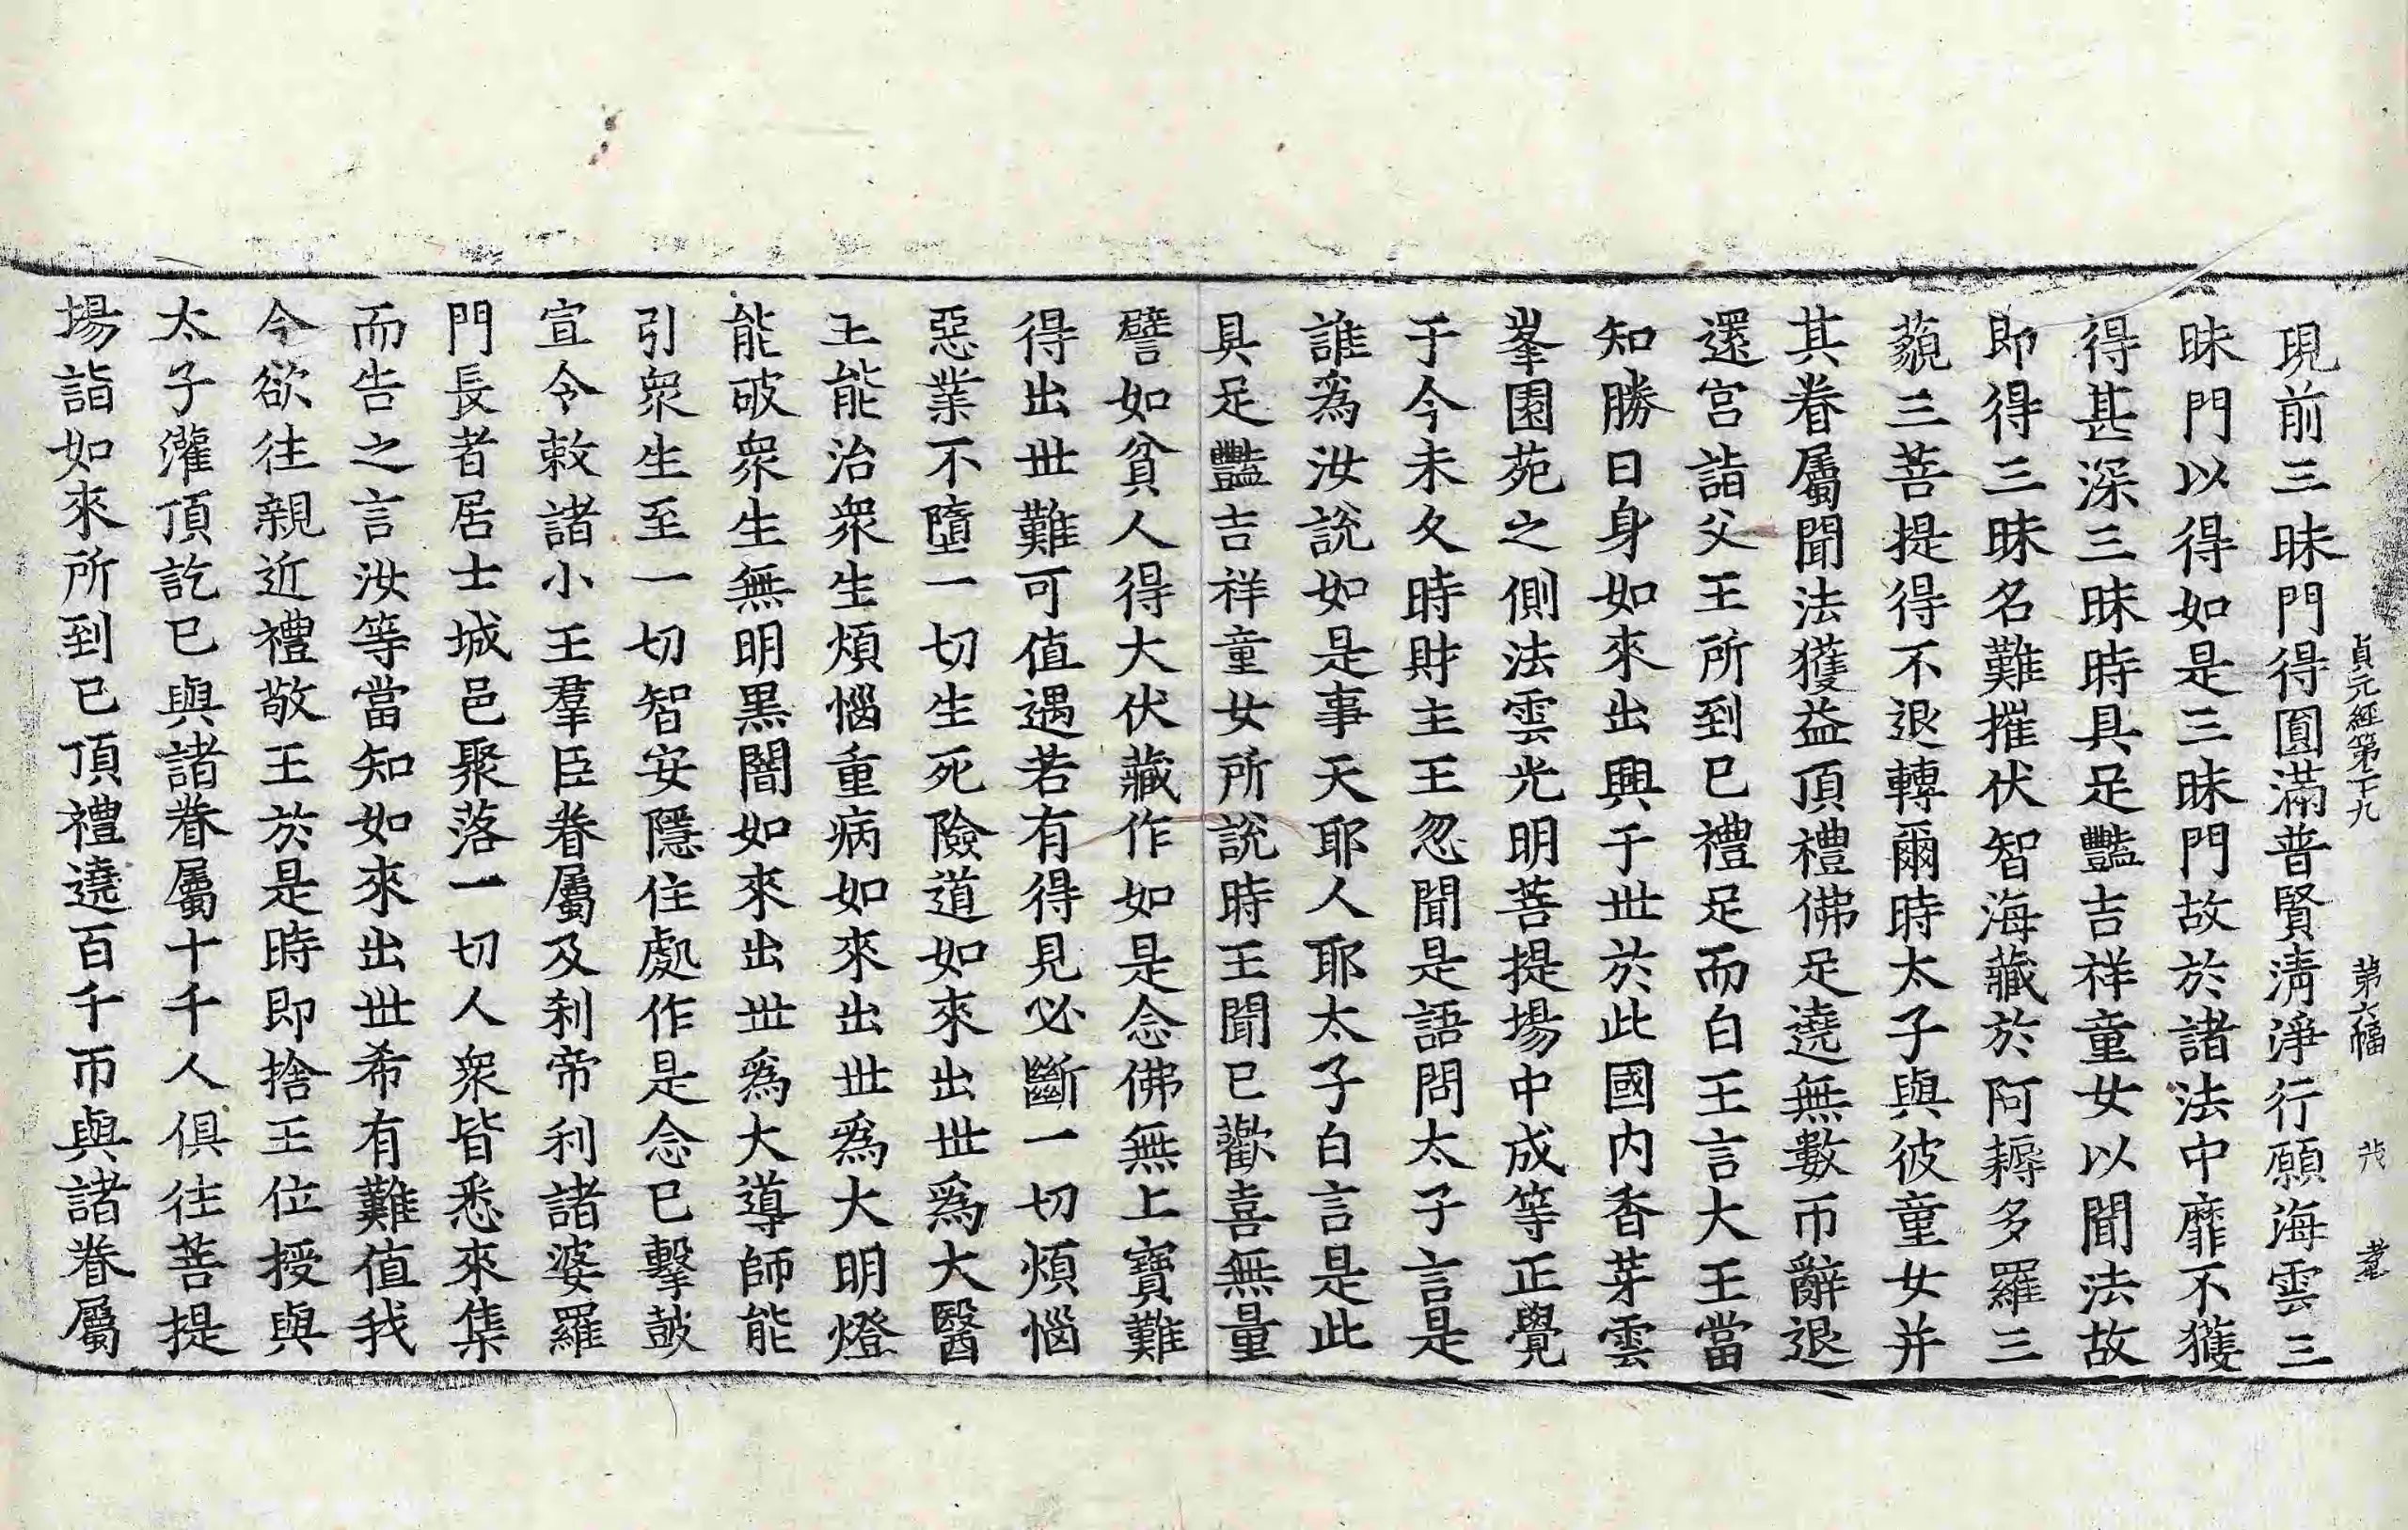 貞元經第二十九 第六幅 茂
現前三昧門得圓滿普賢清淨行願海雲三
昧門以得如是三昧門故於諸法中靡不獲
得甚深三昧時具足豔吉祥童女以聞法故
即得三昧名難摧伏智海藏於阿耨多羅三
藐三菩提得不退轉爾時太子與彼童女并
其眷屬聞法獲益頂禮佛足遶無數帀辭退
還宮詣父王所到已禮足而白王言大王當
知勝日身如來出興于世於此國内香芽雲
峯園苑之側法雲光明菩提場中成等正覺
于今未久時財主王忽聞是語問太子言是
誰爲汝說如是事天耶人耶太子白言是此
具足豔吉祥童女所說時王聞已歡喜無量
譬如貧人得大伏藏作如是念佛無上寶難
得出世難可值遇若有得見必斷一切煩惱
惡業不墮一切生死險道如來出世爲大醫
王能治衆生煩惱重病如來出世爲大明燈
能破衆生無明黑闇如來出世爲大導師能
引衆生至一切智安隱住處作是念已擊鼓
宣令敕諸小王羣臣眷屬及刹帝利諸婆羅
門長者居士城邑聚落一切人衆皆悉來集
而告之言汝等當知如來出世希有難值我
今欲往親近禮敬王於是時即捨王位授與
太子灌頂訖已與諸眷屬十千人俱往菩提
場詣如來所到已頂禮遶百千帀與諸眷屬